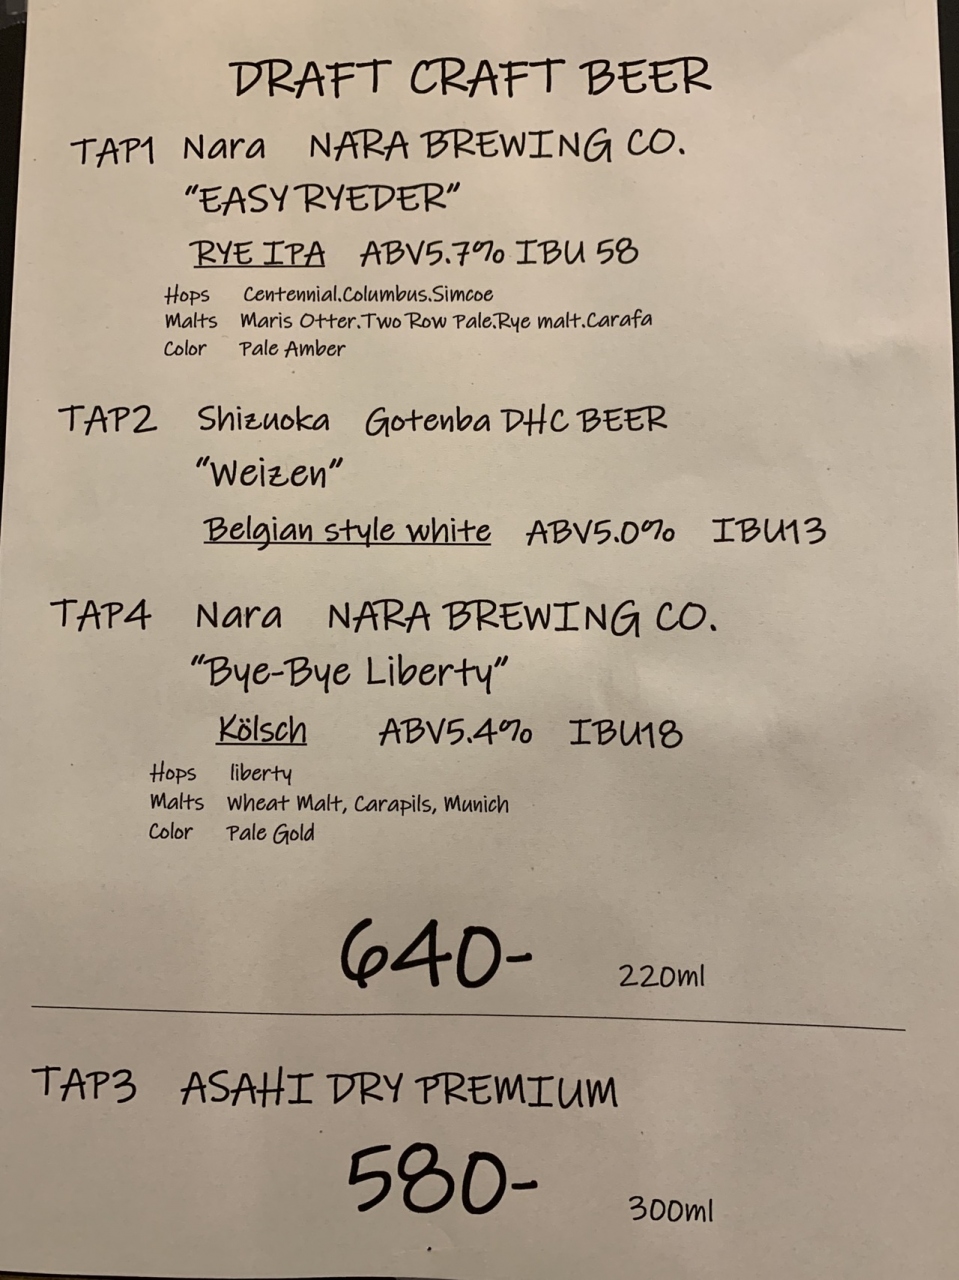 DRAFT CRAFT BEER
TAP1 Nara NARA BREWING CO.
"EASY RYEDER"
RYE IPA ABV5.7% IBU 58
Hops Centennial.Columbus.Simcoe
Malts Maris Otter.Two Row Pale.Rye malt.Carafa
Color Pale Amber
TAP2 Shizuoka Gotenba DHC BEER
"Weizen"
Belgian style white ABV5.0% IBU13
TAP4 Nara NARA BREWING CO.
"Bye-Bye Liberty"
Kölsch ABV5.4% IBU18
Hops liberty
Malts Wheat Malt, Carapils, Munich
Color Pale Gold
640- 220ml
TAP3 ASAHI DRY PREMIUM
580- 300ml